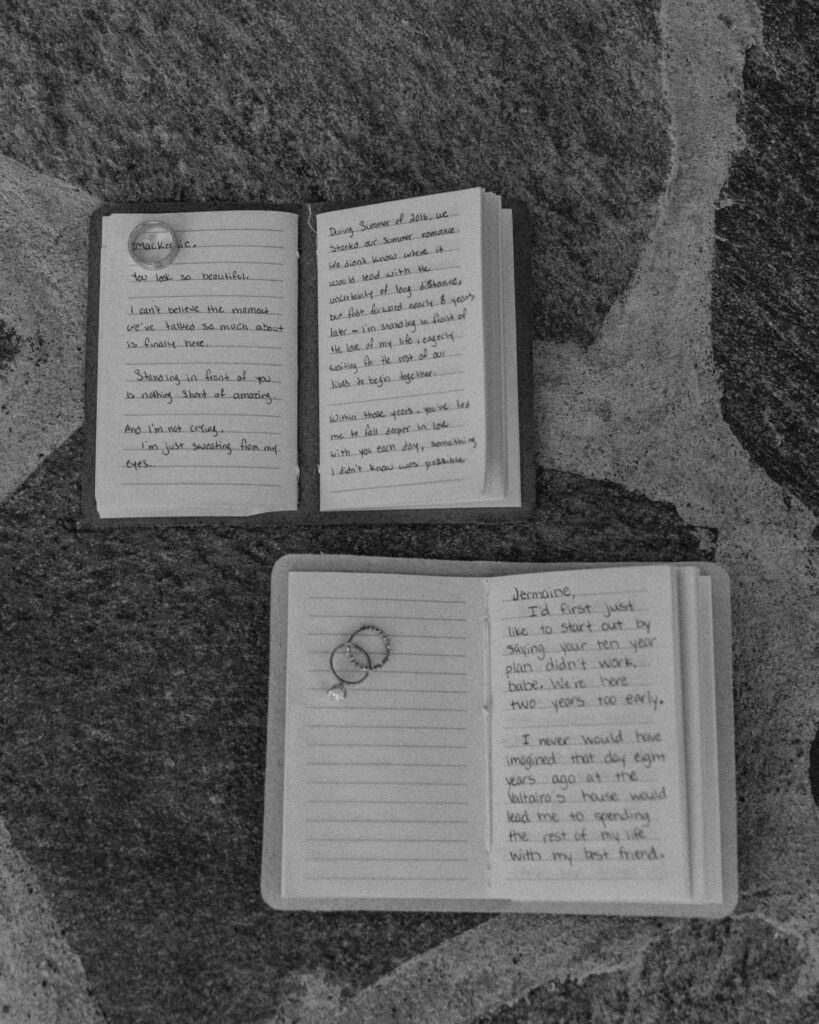 Mackenzie,
You look so beautiful.
I can't believe the moment
we've talked so much about
is finally here.
Standing in front of you
is nothing short of amazing.
And I'm not crying,
I'm just sweating from my
eyes.
During Summer of 2016, we
started our summer romance.
We didn't know where it
would lead with the
uncertainty of long distance,
but fast forward nearly 8 years
later - I'm standing in front of
the love of my life, eagerly
waiting for the rest of our
lives to begin together.
Within those years, you've led
me to fall deeper in love
with you each day, something
I didn't know was possible
Jermaine,
I'd first just
like to start out by
saying your ten year
plan didn't work
babe. We're here
two years too early.
I never would have
imagined that day eight
years ago at the
Valtairo's house would
lead me to spending
the rest of my life
with my best friend.